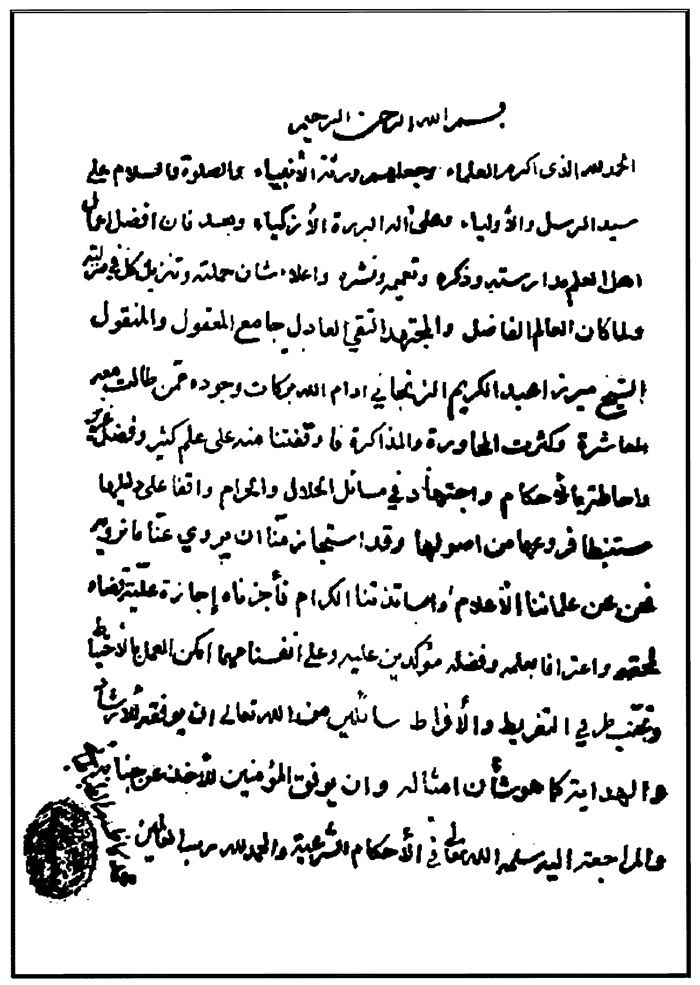 بسم الله الرحمن الرحيم
الحمد لله الذى اكرم العلماء وجعلهم ورثة الأنبياء والصلوة والسلام على
سيد الرسل والأولياء وعلى آله البررة الأزكياء وبعد فان افضل اعمال
اهل العلم مدارسته وذكره وتعميمه ونشره واعلاء شان حملته وتنزيل كل في منزلته
ولما كان العالم الفاضل والمجتهد التقي العادل جامع المعقول والمنقول
الشيخ ميرزا عبد الكريم الزنجاني ادام الله بركات وجوده ممن طالت معه
المعاشرة وكثرت المحاورة والمذاكرة فاوقفتنا منه على علم كثير وفضل غزير
واحاطة بالأحكام واجتهاد في مسائل الحلال والحرام واقفا على دليلها
مستنبطا فروعها من اصولها وقد استجاز منّا ان يروي عنّا ما نرويه
نحن عن علمائنا الأعلام واساتذتنا الكرام فأجزناه إجازة علميّة قضاء
لحقه واعترافا بعلمه وفضله مؤكدين عليه وعلى انفسنا مهما امكن العمل بالأحتياط
وتجنّب طرفي التفريط والأفراط سائلين من الله تعالى ان يوفقه للأرشاد
والهداية كما هو شأن امثاله وان يوفق المؤمنين للأخذ عن جنابه
والمراجعة اليه سلمه الله تعالى في الأحكام الشرعية والحمد لله رب العالمين